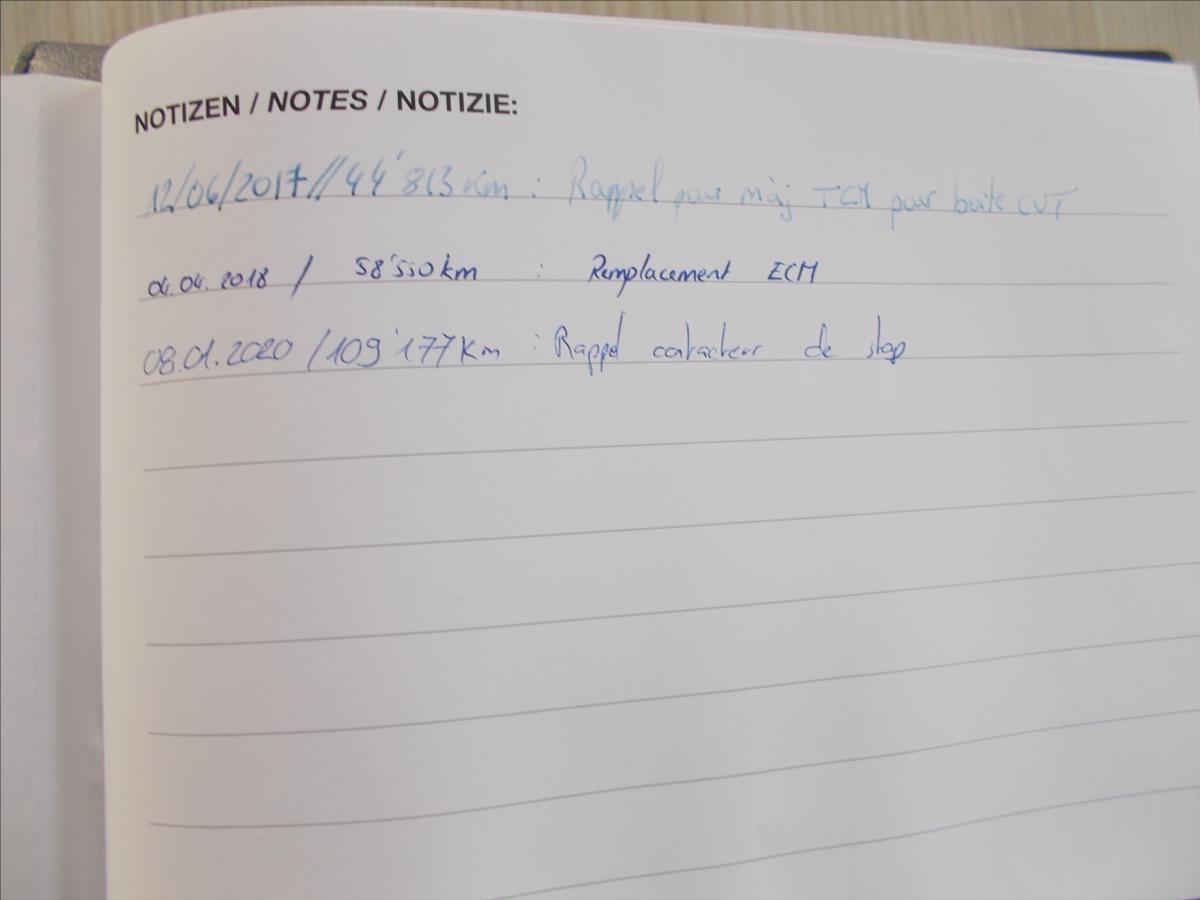 NOTIZEN / NOTES / NOTIZIE:
12/06/2017//44'813 Km : Rappel pour màj TCM pour boite CVT
04.04.2018 / 58'550 km : Remplacement ECM
08.01.2020 /109'177 Km : Rappel contacteur de stop